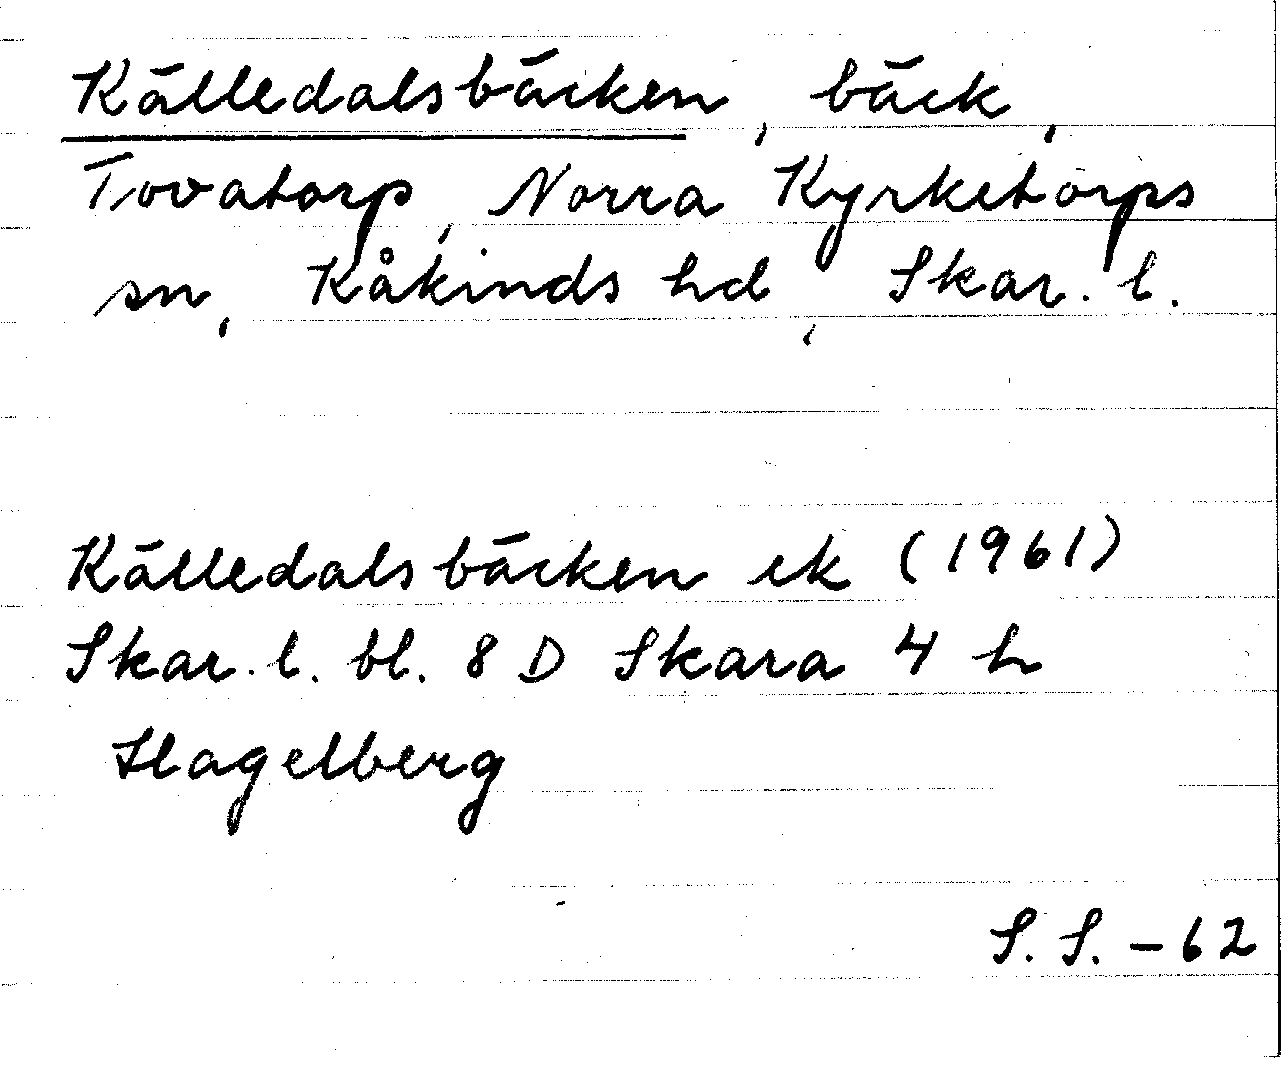 Källedalsbäcken, bäck,
Tovatorp, Norra Kyrketorps
sn, Kåkinds hd, Skar. l.
Källedalsbäcken ek (1961)
Skar. l. bl. 8 D Skara 4 h
Hagelberg
S. S. - 62